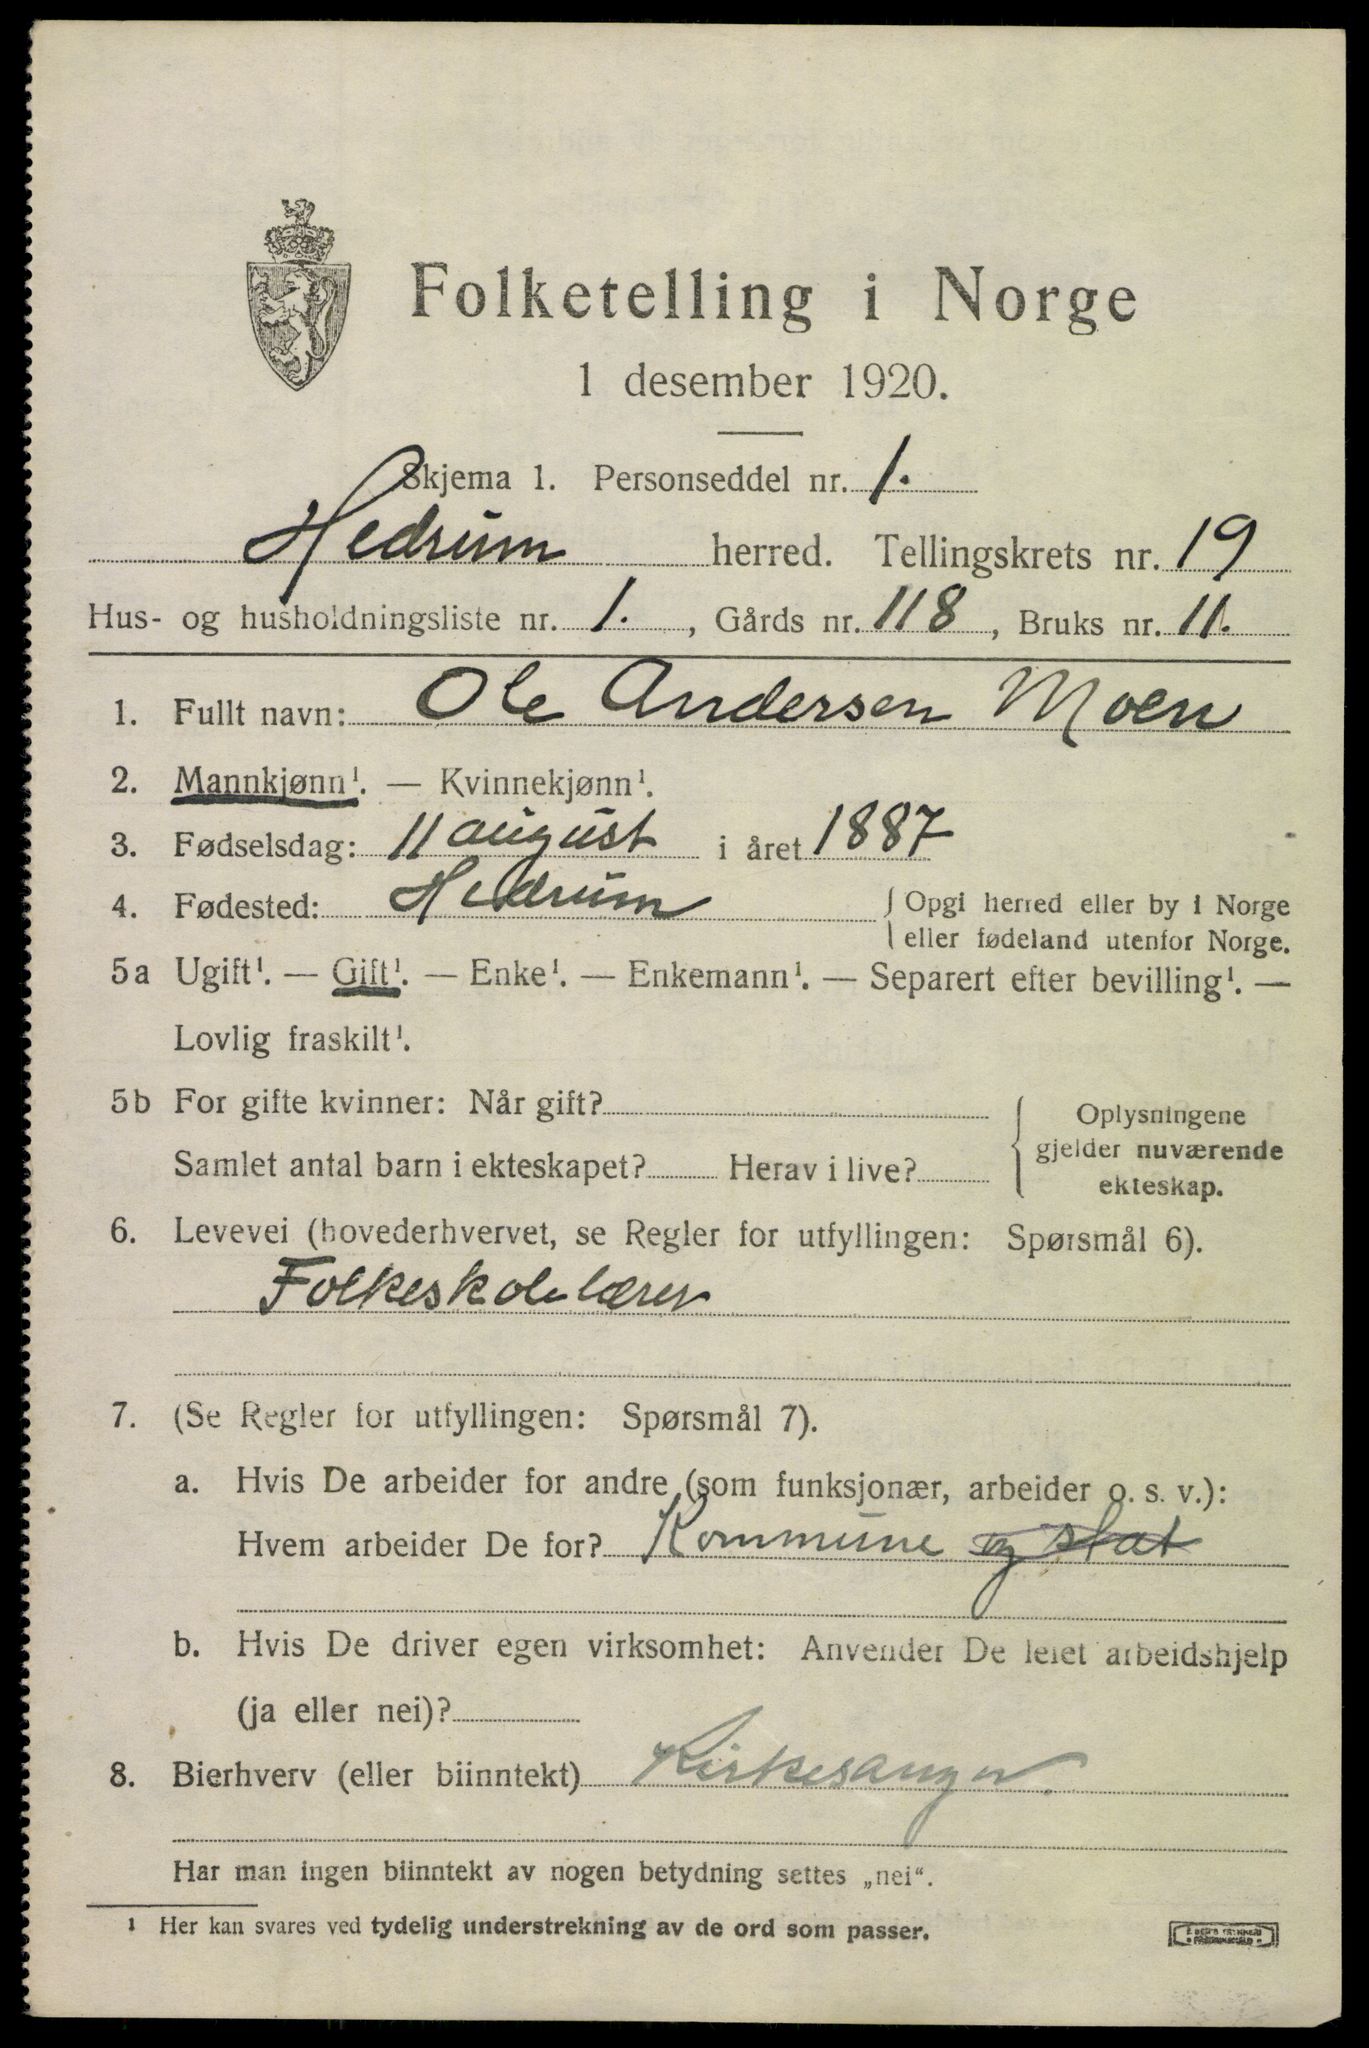 Folketelling i Norge
1 desember 1920.
Skjema 1. Personseddel nr. 1.
Hedrum herred. Tellingskrets nr. 19
Hus- og husholdningsliste nr. 1. , Gårds nr. 118 , Bruks nr. 11.
1. Fullt navn: Ole Andersen Moen
2. Mannkjønn¹. — Kvinnekjønn¹.
3. Fødselsdag: 11 august i året 1887
4. Fødested: Hedrum { Opgi herred eller by i Norge
eller fødeland utenfor Norge.
5a Ugift¹. — Gift¹. — Enke¹. — Enkemann¹. — Separert efter bevilling¹. —
Lovlig fraskilt¹.
5b For gifte kvinner: Når gift?
Samlet antal barn i ekteskapet? Herav i live?
Oplysningene
gjelder nuværende
ekteskap.
6. Levevei (hovederhvervet, se Regler for utfyllingen: Spørsmål 6).
Folkeskolelærer
7. (Se Regler for utfyllingen: Spørsmål 7).
a. Hvis De arbeider for andre (som funksjonær, arbeider o. s. v.):
Hvem arbeider De for? Kommune og stat
b. Hvis De driver egen virksomhet: Anvender De leiet arbeidshjelp
(ja eller nei)?
8. Bierhverv (eller biinntekt) Kirkesanger.
Har man ingen biinntekt av nogen betydning settes „nei“.
¹ Her kan svares ved tydelig understrekning av de ord som passer.